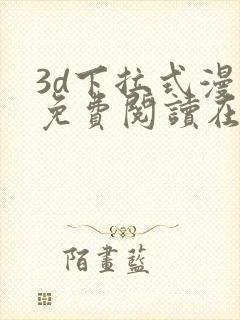 3d下拉式漫
免費閱讀在
陌畫藍